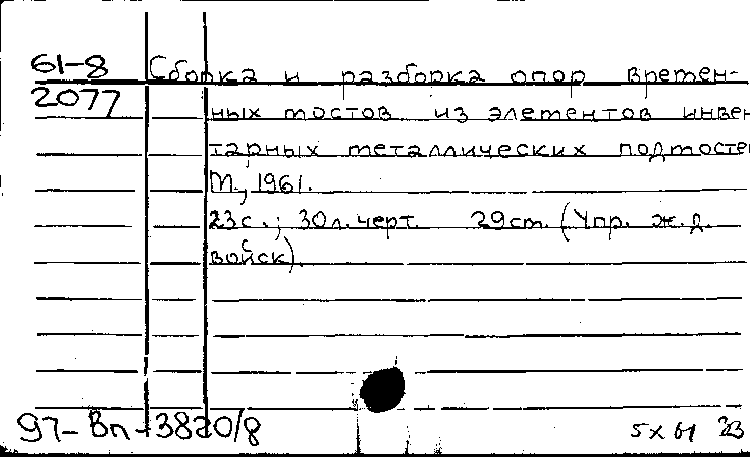 61-8 Сборка и разборка опор времен-
2077 ных мостов из элементов инвен
тарных металлических подмостей
М., 1961.
23с.; 30л.черт. 29см. (Упр. ж.д.
войск).
97-Вп-3820/8 5 X 61 23